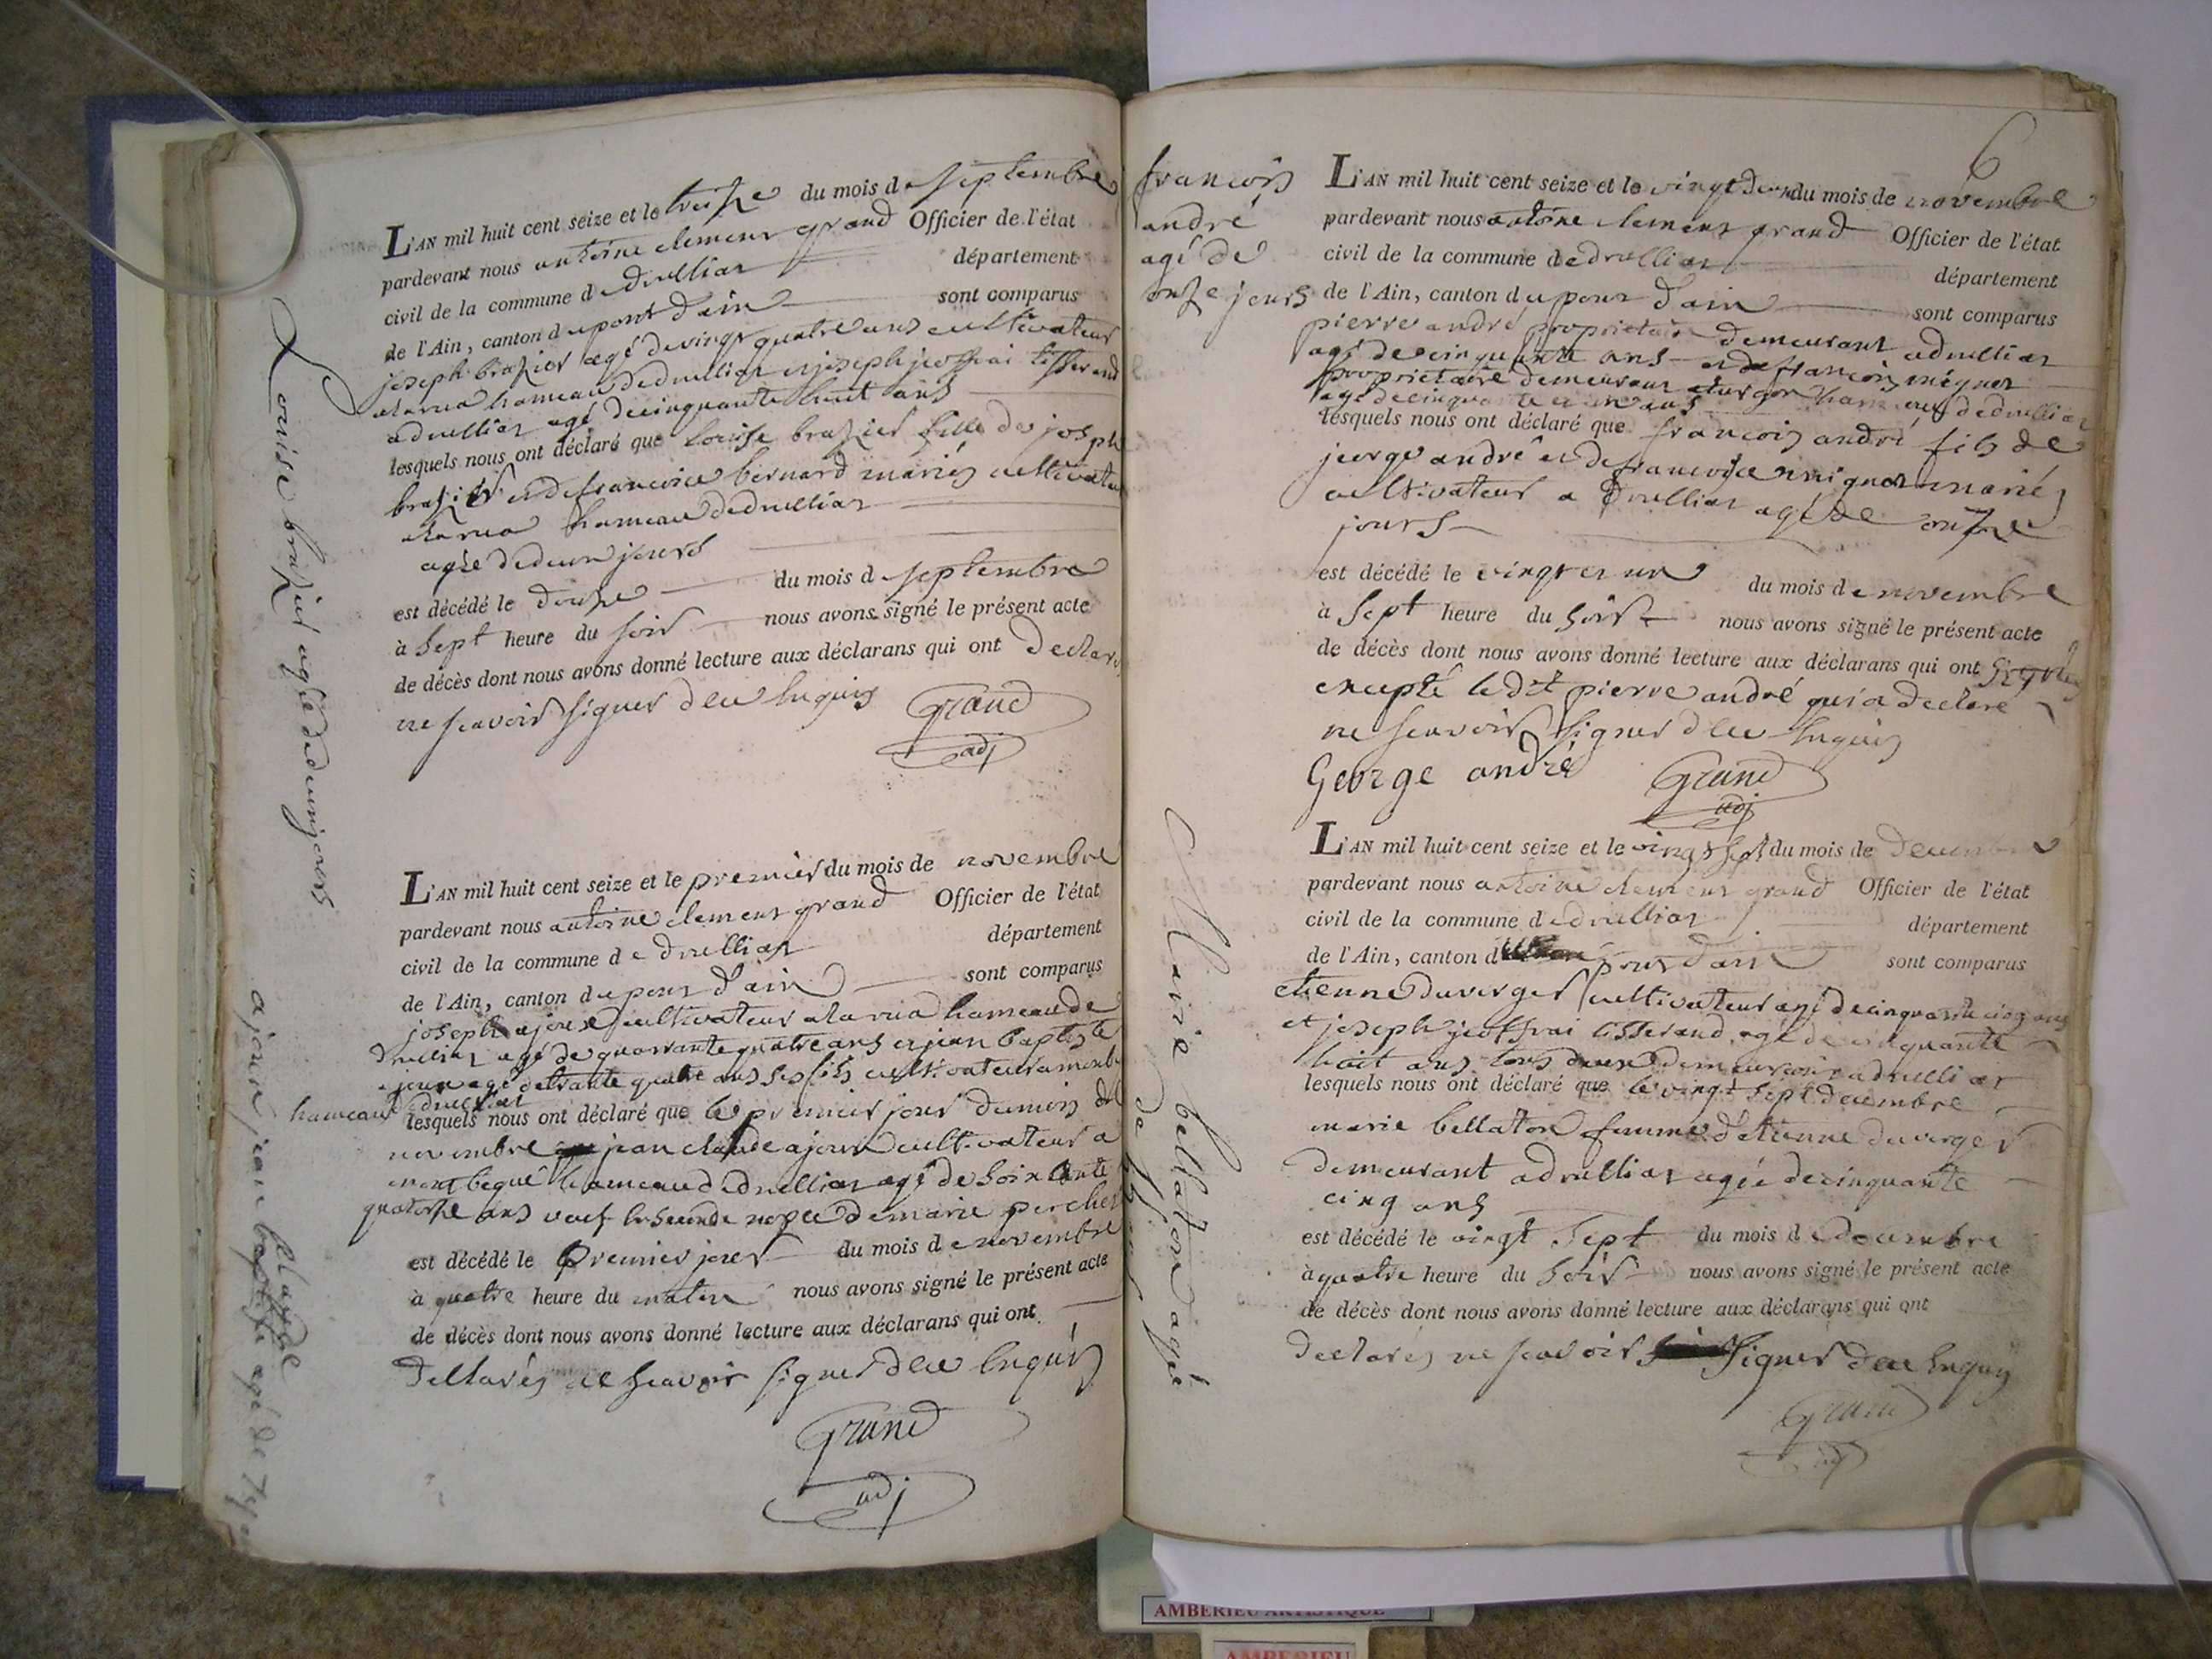 Louise brazier agée de deux jours
L'AN mil huit cent seize et le treize du mois de septembre
pardevant nous antoine clement grand Officier de l'état
civil de la commune de druilliat département
de l'Ain, canton du pont d'ain sont comparus
joseph brazier agé de vingt quatre ans cultivateur
a la rua hameau de druilliat et joseph jeoffrai tisserand
a druilliat agé de cinquante huit ans
lesquels nous ont déclaré que louise brazier fille de joseph
brazier et de francoise bernard mariés cultivateur
a la rua hameau de druilliat
agée de deux jours
est décédé le douze du mois d septembre
à sept heure du soir nous avons signé le présent acte
de décès dont nous avons donné lecture aux déclarans qui ont declarés
ne scavoir signer d ce enquis
Grand
adj
ajoux jean claude agé de
L'AN mil huit cent seize et le premier du mois de novembre
pardevant nous antoine clement grand Officier de l'état
civil de la commune de druilliat département
de l'Ain, canton du pont d'ain sont comparus
joseph ajoux cultivateur a la rua hameau de
druilliat agé de quarante quatre ans et jean baptiste
ajoux agé de trante quatre ans ses fils cultivateur a
hameau de druilliat
lesquels nous ont déclaré que le premier jour du mois de
novembre jean claude ajoux cultivateur a
hameau de druilliat agé de soixante
quatorze ans veuf en seconde de marie
est décédé le premier jour du mois de novembre
à quatre heure du matin nous avons signé le présent acte
de décès dont nous avons donné lecture aux déclarans qui ont
declarés ne scavoir signer d ce enquis
Grand
adj
6
francois
andré
agé de
onze jours
L'AN mil huit cent seize et le vingt deux du mois de novembre
pardevant nous antoine clement grand Officier de l'état
civil de la commune de druilliat département
de l'Ain, canton du pont d'ain sont comparus
pierre andré proprietaire demeurant a druilliat
agé de cinquante ans et de francois mignot
proprietaire demeurant a turgon hameau de druilliat
agé de cinquante ans
lesquels nous ont déclaré que francois andré fils de
jeorge andré et de francoise mignot mariés
cultivateur a druilliat agé de onze
jours
est décédé le vingt et un du mois de novembre
à sept heure du soir nous avons signé le présent acte
de décès dont nous avons donné lecture aux déclarans qui ont signés
excepté le dit pierre andré qui a declaré
ne scavoir signer d ce enquis
George andré Grand
adj
Marie bellaton agée
de
L'AN mil huit cent seize et le vingt sept du mois de decembre
pardevant nous antoine clement grand Officier de l'état
civil de la commune de druilliat département
de l'Ain, canton d pont d'ain sont comparus
etienne duverger cultivateur agé de cinquante cinq ans
et joseph jeoffrai tisserand agé de cinquante
huit ans tous deux demeurant a druilliat
lesquels nous ont déclaré que le vingt sept decembre
marie bellaton femme d'etienne duverger
demeurant a druilliat agée de cinquante
cinq ans
est décédé le vingt sept du mois de decembre
à quatre heure du soir nous avons signé le présent acte
de décès dont nous avons donné lecture aux déclarans qui ont
declarés ne scavoir signer d ce enquis
Grand
adj
AMBERIEU ARTISTIQUE
AMBERIEU